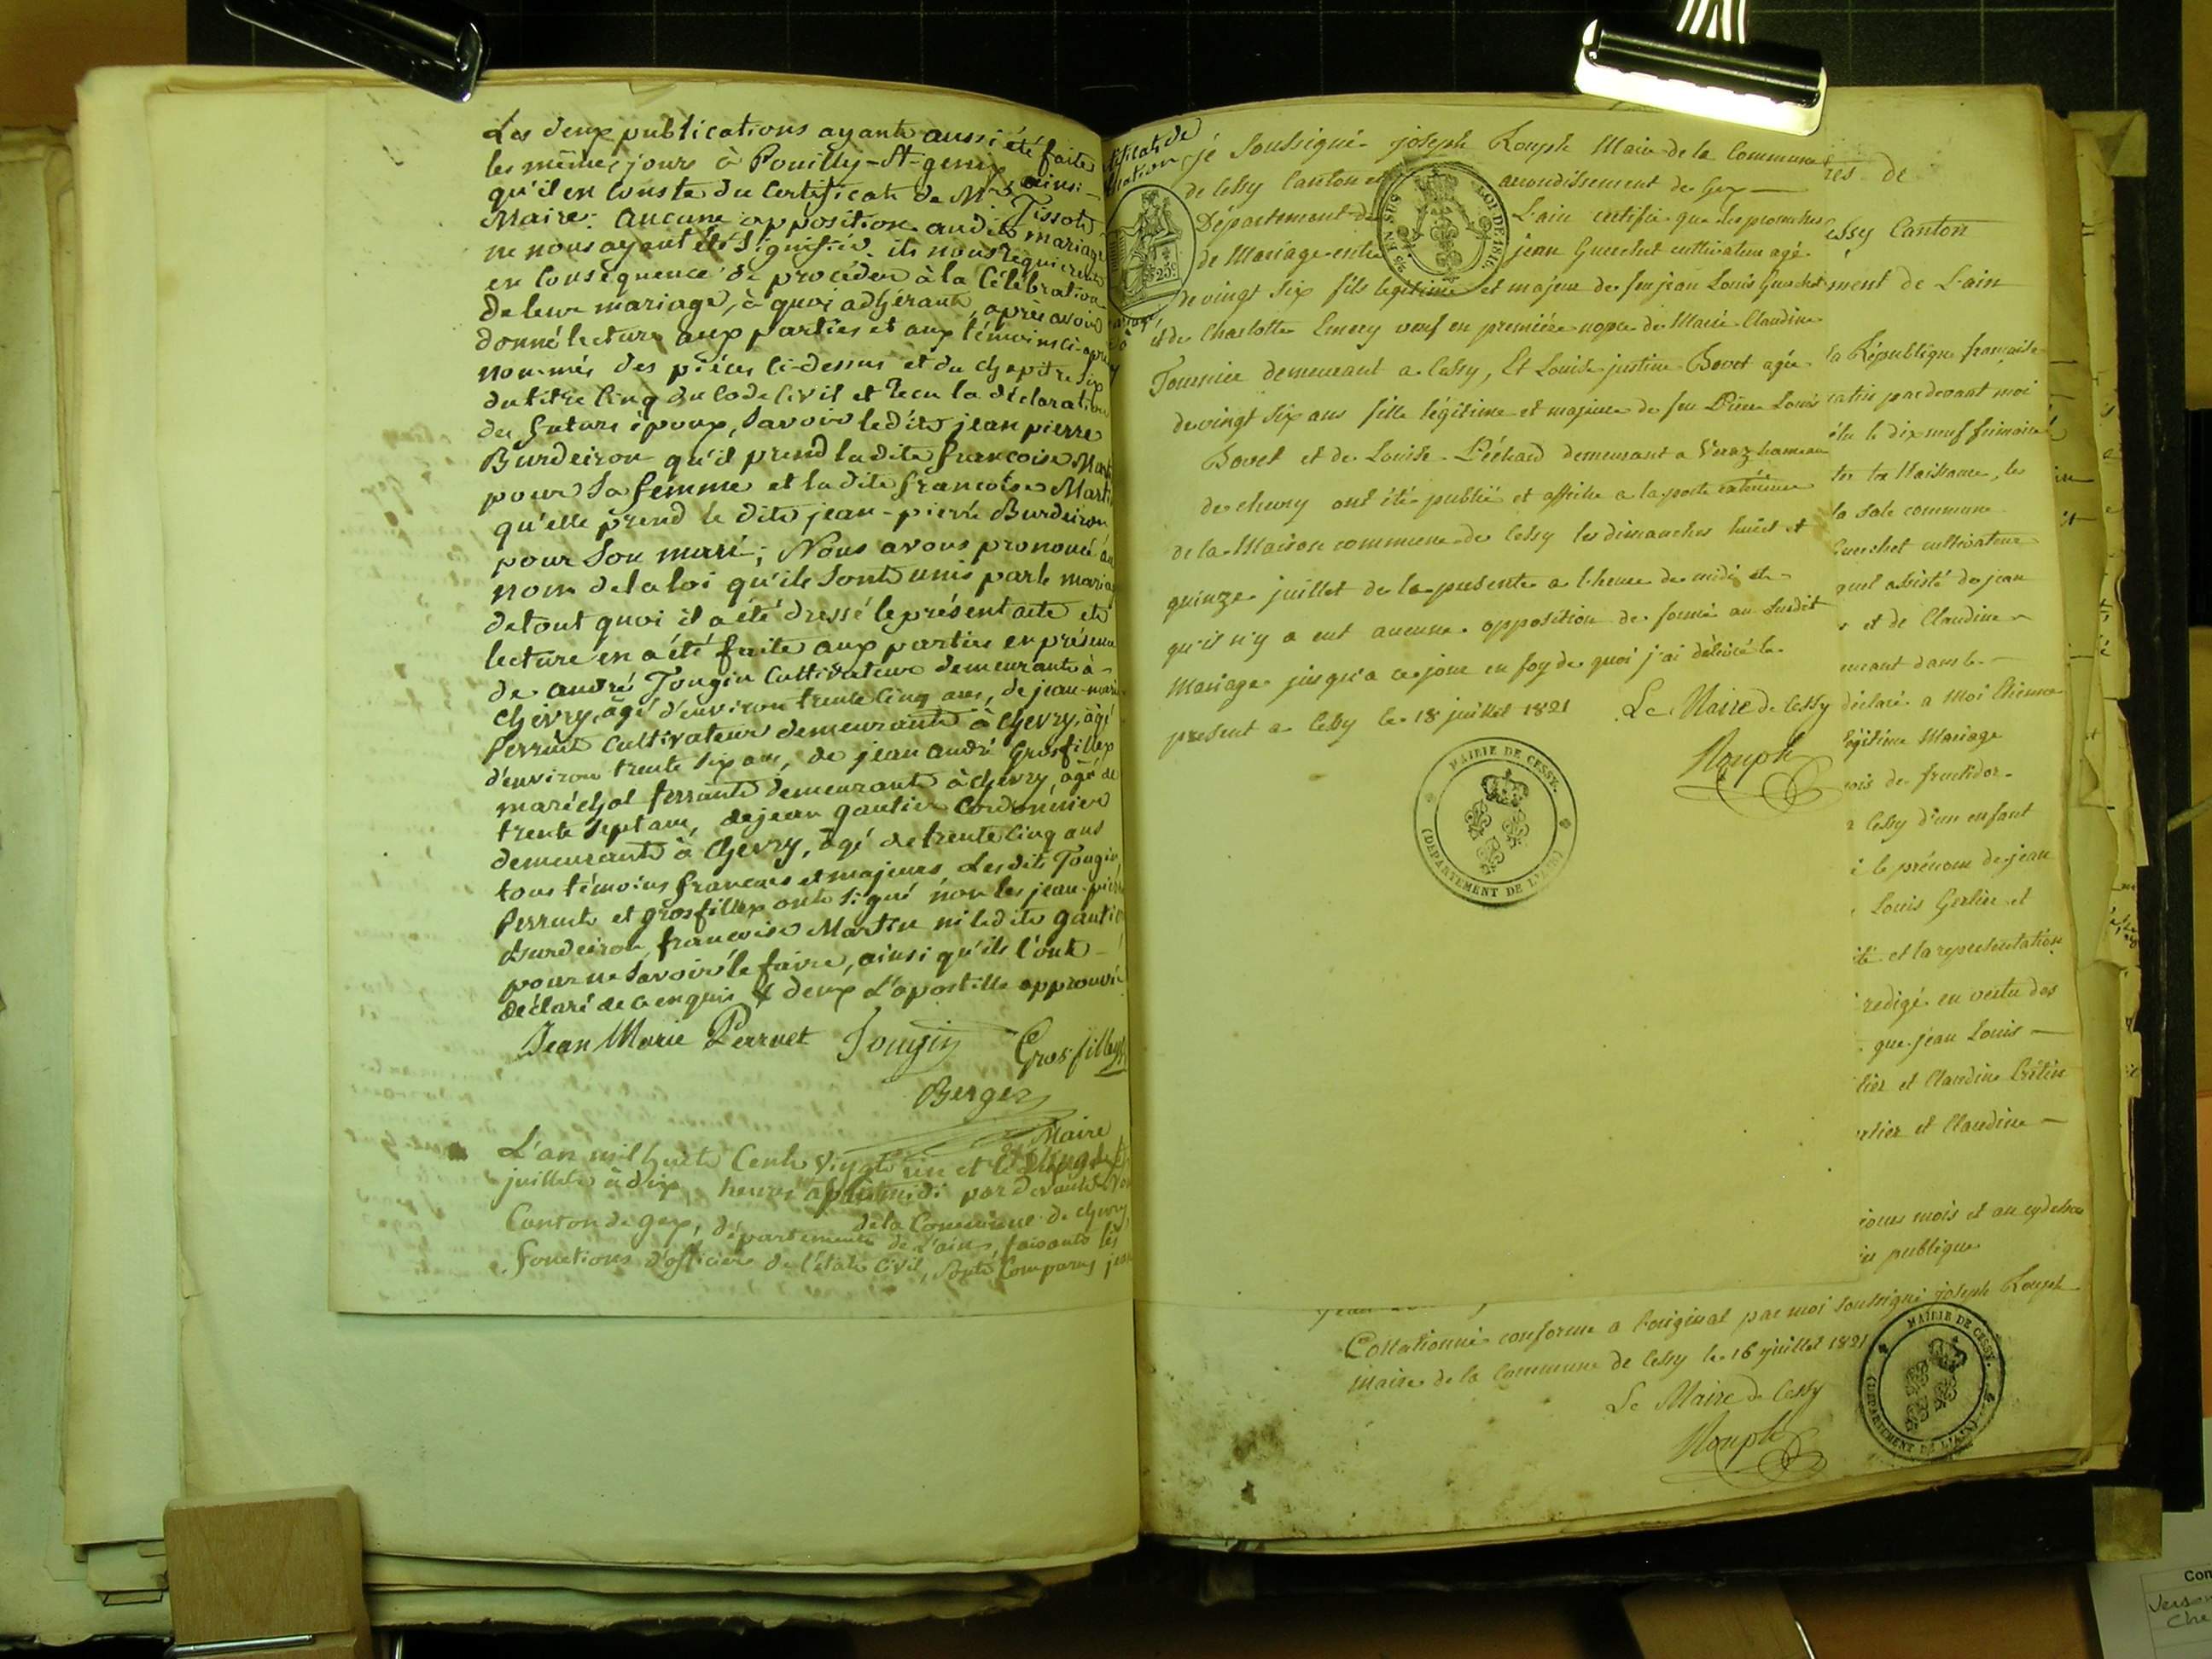 Les deux publications ayant aussi été faites
les mêmes jours à Pouilly-St-genix ainsi
qu'il en conste du Certificat de Mr Tissot
Maire. Aucune opposition audit mariage
ne nous ayant été signifiée. ils nous requierent
en conséquence de procéder à la Célébration
de leur mariage, à quoi adhérant, après avoir
donné lecture aux parties et aux témoins ci-après
nommés des pièces ci-dessus et du chapitre six
du titre cinq du Code Civil et recu la déclaration
des futurs époux, savoir ledit jean pierre
Burdeiron qu'il prend ladite francoise Martin
pour sa femme et ladite francoise Martin
qu'elle prend le dit jean-pierre Burdeiron
pour son mari; Nous avons prononcé au
nom de la loi qu'ils sont unis par le mariage
de tout quoi il a été dressé le présent acte et
lecture en a été faite aux parties en présence
de andré Tougin Cultivateur demeurant à
chevry, agé d'environ trente cinq ans, de jean-marie
Perruet Cultivateur demeurant à Chevry, âgé
d'environ trente six ans, de jean andré Grosfillex
maréchal ferrant demeurant à chevry, agé de
trente sept ans, de jean gautier Cordonnier
demeurant à Chevry, âgé de trente cinq ans
tous témoins francais et majeurs, Lesdits Tougin,
Perruet et grosfillex ont signé non les jean-pierre
Burdeiron, francoise Martin ni ledit gautier
pour ne savoir le faire, ainsi qu'ils l'ont
déclaré de ce enquis & deux L'apostille approuvée
Jean Marie Perruet Tougin Grosfillex
Berger
Maire
L'an mil huit Cent vingt un et le
juillet à dix heures après midi par devant
de la Commune de chevry,
Canton de gex, département de L'ain, faisant les
fonctions d'officier de l'état Civil, sont Comparus jean
je Soussigné joseph Rouph Maire de la Commune
de Cessy Canton et arrondissement de Gex
Département de L'ain certifie que les promesses
de Mariage entre jean Guerchet cultivateur agé
de vingt six fils legitime et majeur de feu jean Louis Guerchet
et de Charlotte Emery veuf en premiere nopce de Marie Claudine
Fournier demeurant a Cessy, Et Louise justine Bovet agée
de vingt six ans fille légitime et majeure de feu Pierre Louis
Bovet et de Louise Péchard demeurant a Veraz hameau
de chevry ont été publié et affiche a la porte extérieure
de la Maison commune de Cessy les dimanches huit et
quinze juillet de la presente a l'heure de midi et
qu'il n'y a eut aucune opposition de formé au Susdit
Mariage jusqu'a ce jour en foy de quoi j'ai délivré le
present a Cessy le 18 juillet 1821 Le Maire de Cessy
Rouph
25 C
EN SUS LOI DE 1816
MAIRIE DE CESSY.
(DEPARTEMENT DE L'AIN)
res de
Cessy Canton
ment de L'ain
la République française
matin pardevant moi
élu le dix neuf frimaire
la Naissance, les
la sale commune
Guerchet cultivateur
quel assisté de jean
et de Claudine
meurant dans le
déclaré a Moi Etienne
légitime Mariage
mois de fructidor
a Cessy d'un enfant
le prénom de jean
Louis Gerlier et
et la representation
redigé en vertu des
que jean Louis
lier et Claudine Crétin
rlier et Claudine
jour mois et an cy dessus
publique
Collationné conforme a l'original par moi soussigné joseph Rouph
Maire de la Commune de Cessy le 16 juillet 1821
Le Maire de Cessy
Rouph
MAIRIE DE CESSY.
(DEPARTEMENT DE L'AIN)
Con